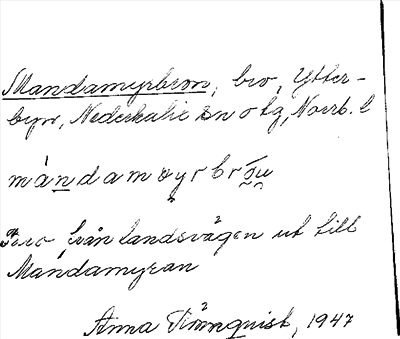 Mandamyrbron, bro, Ytter-
byn, Nederkalix sn o tg, Norrb. l
mándamyrbrōu
Bro från landsvägen ut till
Mandamyran
Anna Tömqvist, 1947